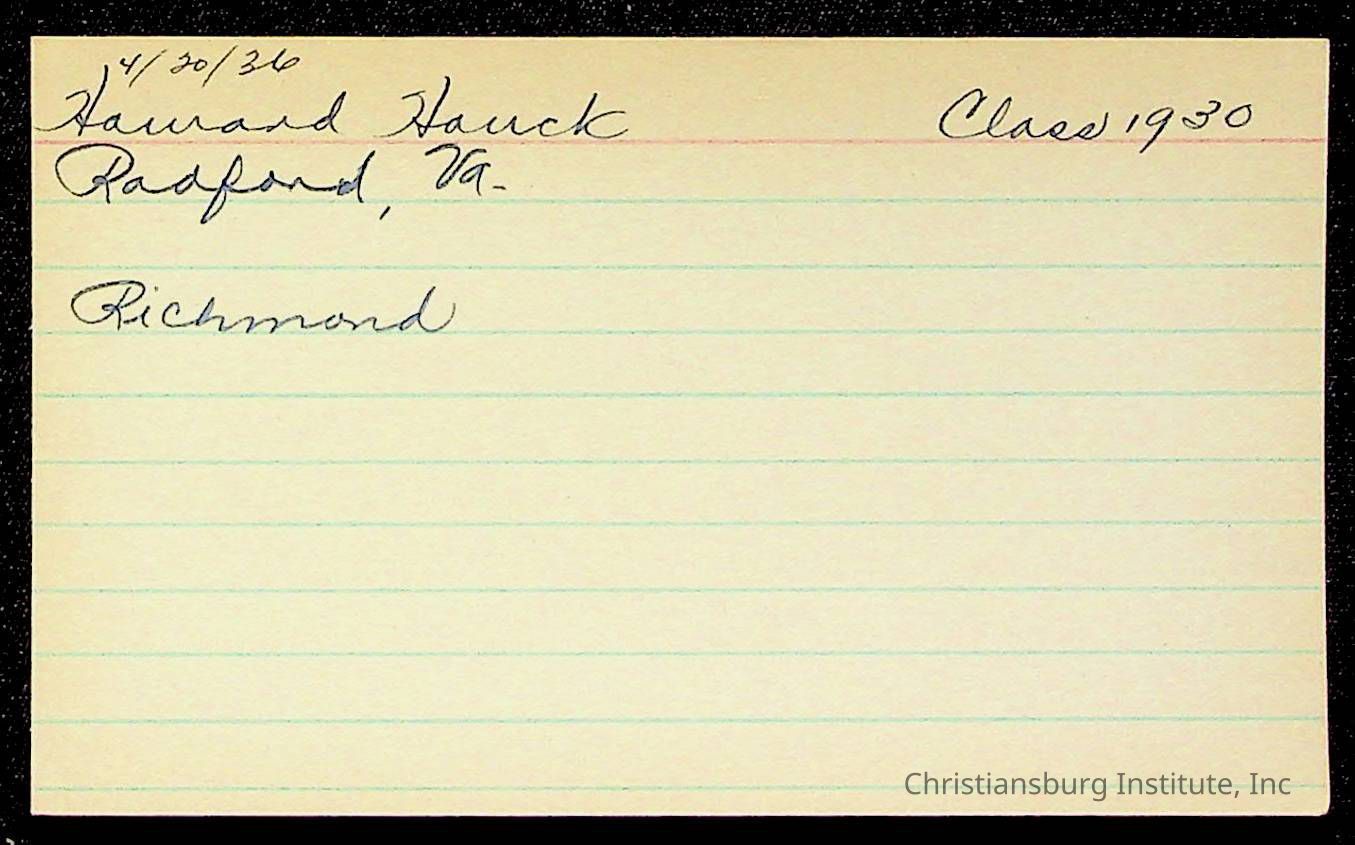 4/20/36
Howard Houck Class 1930
Radford, Va.
Richmond
Christiansburg Institute, Inc